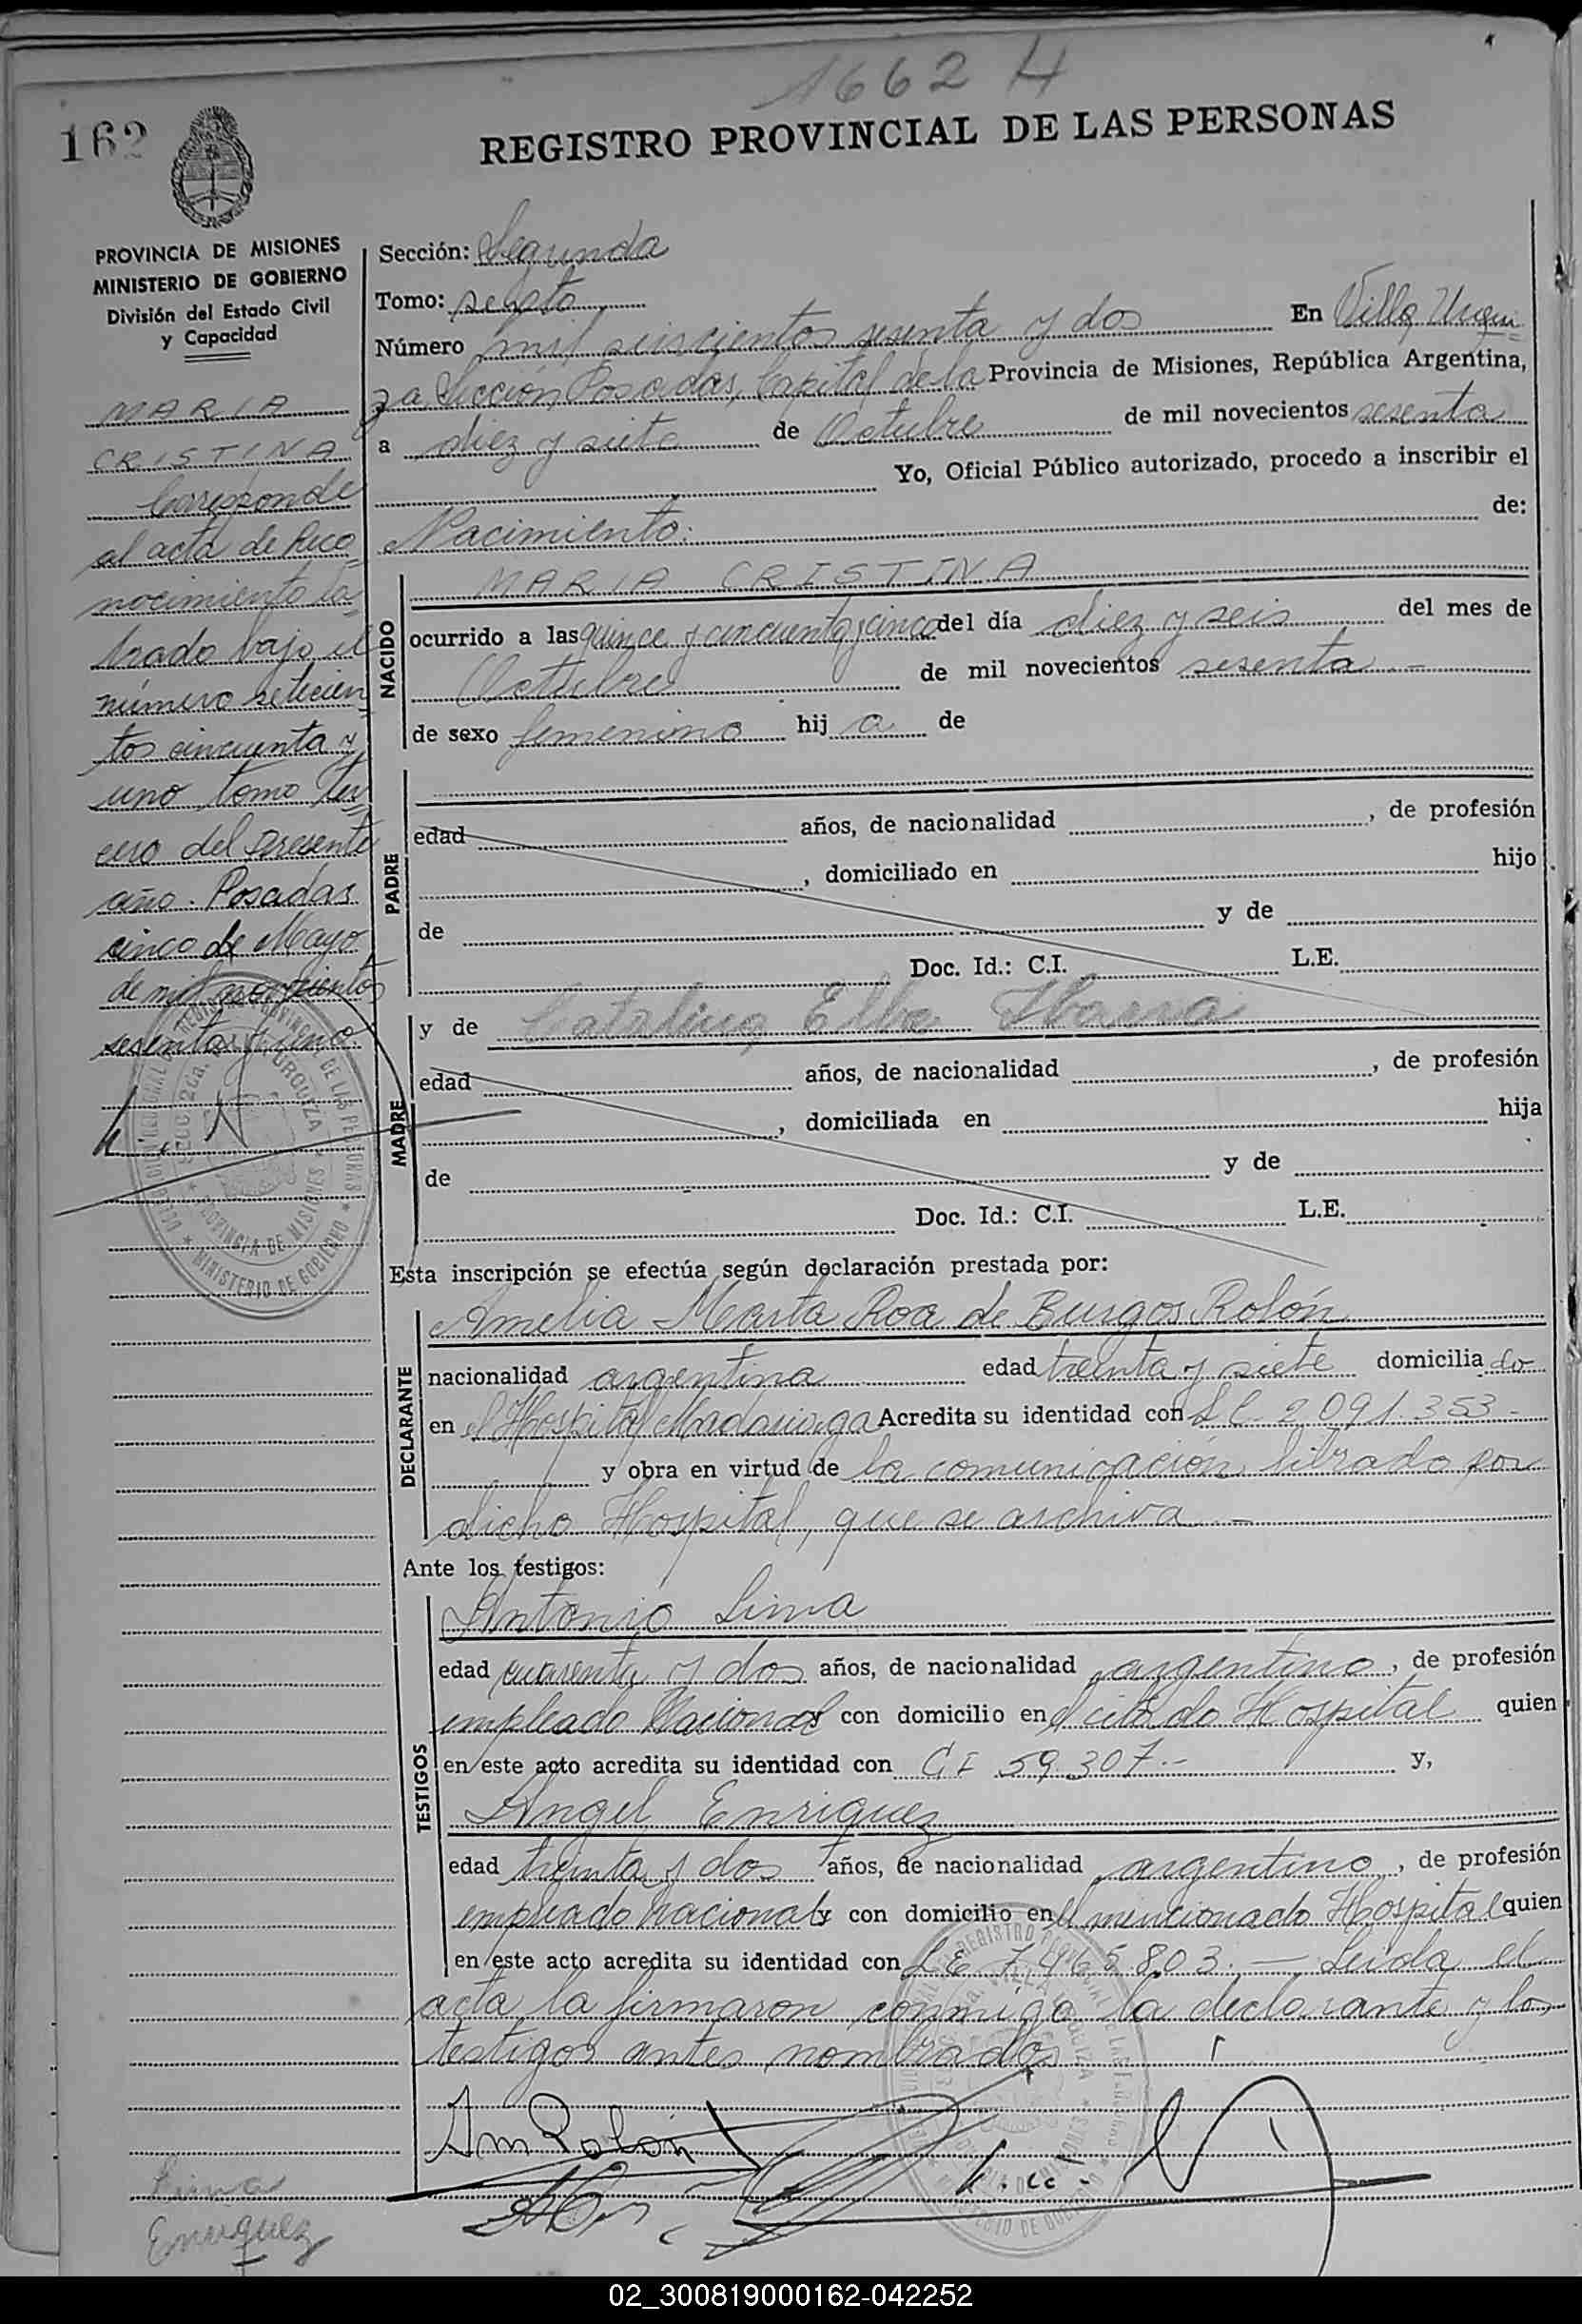 1662 H
162
REGISTRO PROVINCIAL DE LAS PERSONAS
PROVINCIA DE MISIONES
MINISTERIO DE GOBIERNO
División del Estado Civil
y Capacidad
MARIA
CRISTINA
Corresponde
al acta de Reco
nocimiento la=
brado bajo el
número setecien=
tos cincuenta y
uno tomo ter=
cero del presente
año. Posadas
cinco de Mayo
de mil novecientos
sesenta y uno
Sección: Segunda
Tomo: sexto
Número mil seiscientos sesenta y dos En Villa Urqui=
za Sección Posadas, Capital de la Provincia de Misiones, República Argentina,
a diez y siete de Octubre de mil novecientos sesenta
Yo, Oficial Público autorizado, procedo a inscribir el
Nacimiento: de:
NACIDO
MARIA CRISTINA
ocurrido a las quince y cincuenta y cinco del día diez y seis del mes de
Octubre de mil novecientos sesenta.-
de sexo femenino hij a de
PADRE
edad años, de nacionalidad , de profesión
, domiciliado en hijo
de y de
Doc. Id.: C.I. L.E.
MADRE
y de Catalina Elba Ibarra
edad años, de nacionalidad , de profesión
, domiciliada en hija
de y de
Doc. Id.: C.I. L.E.
Esta inscripción se efectúa según declaración prestada por:
DECLARANTE
Amelia Marta Roa de Burgos Rolón
nacionalidad argentina edad treinta y siete domicilia do
en el Hospital Madariaga Acredita su identidad con L C 2.091.353-
y obra en virtud de la comunicación librado por
dicho Hospital, que se archiva -
Ante los testigos:
TESTIGOS
Antonio Lima
edad cuarenta y dos años, de nacionalidad argentino, de profesión
empleado Nacional y con domicilio en el citado Hospital quien
en este acto acredita su identidad con C I 59.307.- y,
Angel Enriquez
edad treinta y dos años, de nacionalidad argentino, de profesión
empleado nacional y con domicilio en el mencionado Hospital quien
en este acto acredita su identidad con L E 7.465.803. - Leida el
acta la firmaron conmigo la declarante y los
testigos antes nombrados
Am Rolón
Lima
Enriquez
02_300819000162-042252